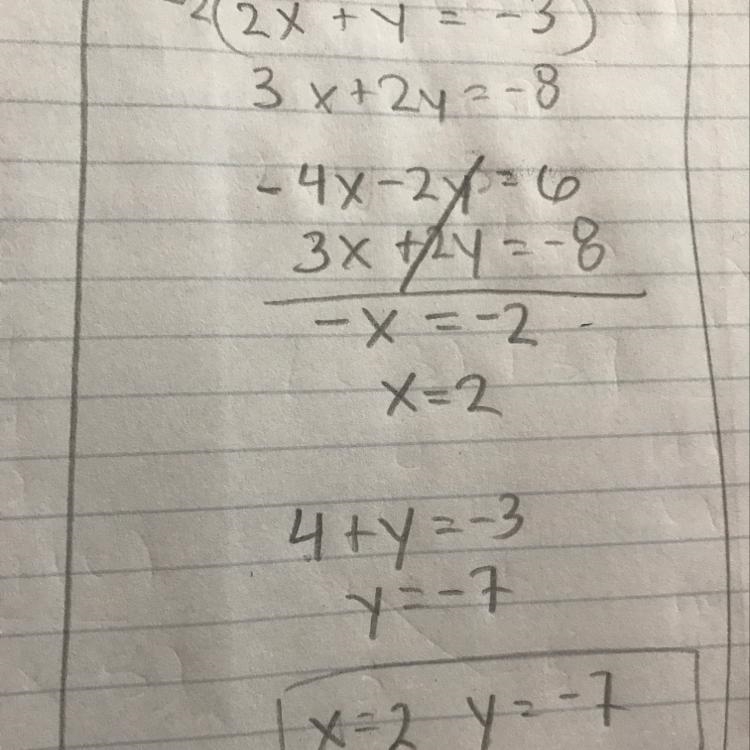 -2(2x + y = -3)
3x + 2y = -8
-4x - 2y = 6
3x + 2y = -8
-x = -2
x = 2
4 + y = -3
y = -7
x = 2 y = -7